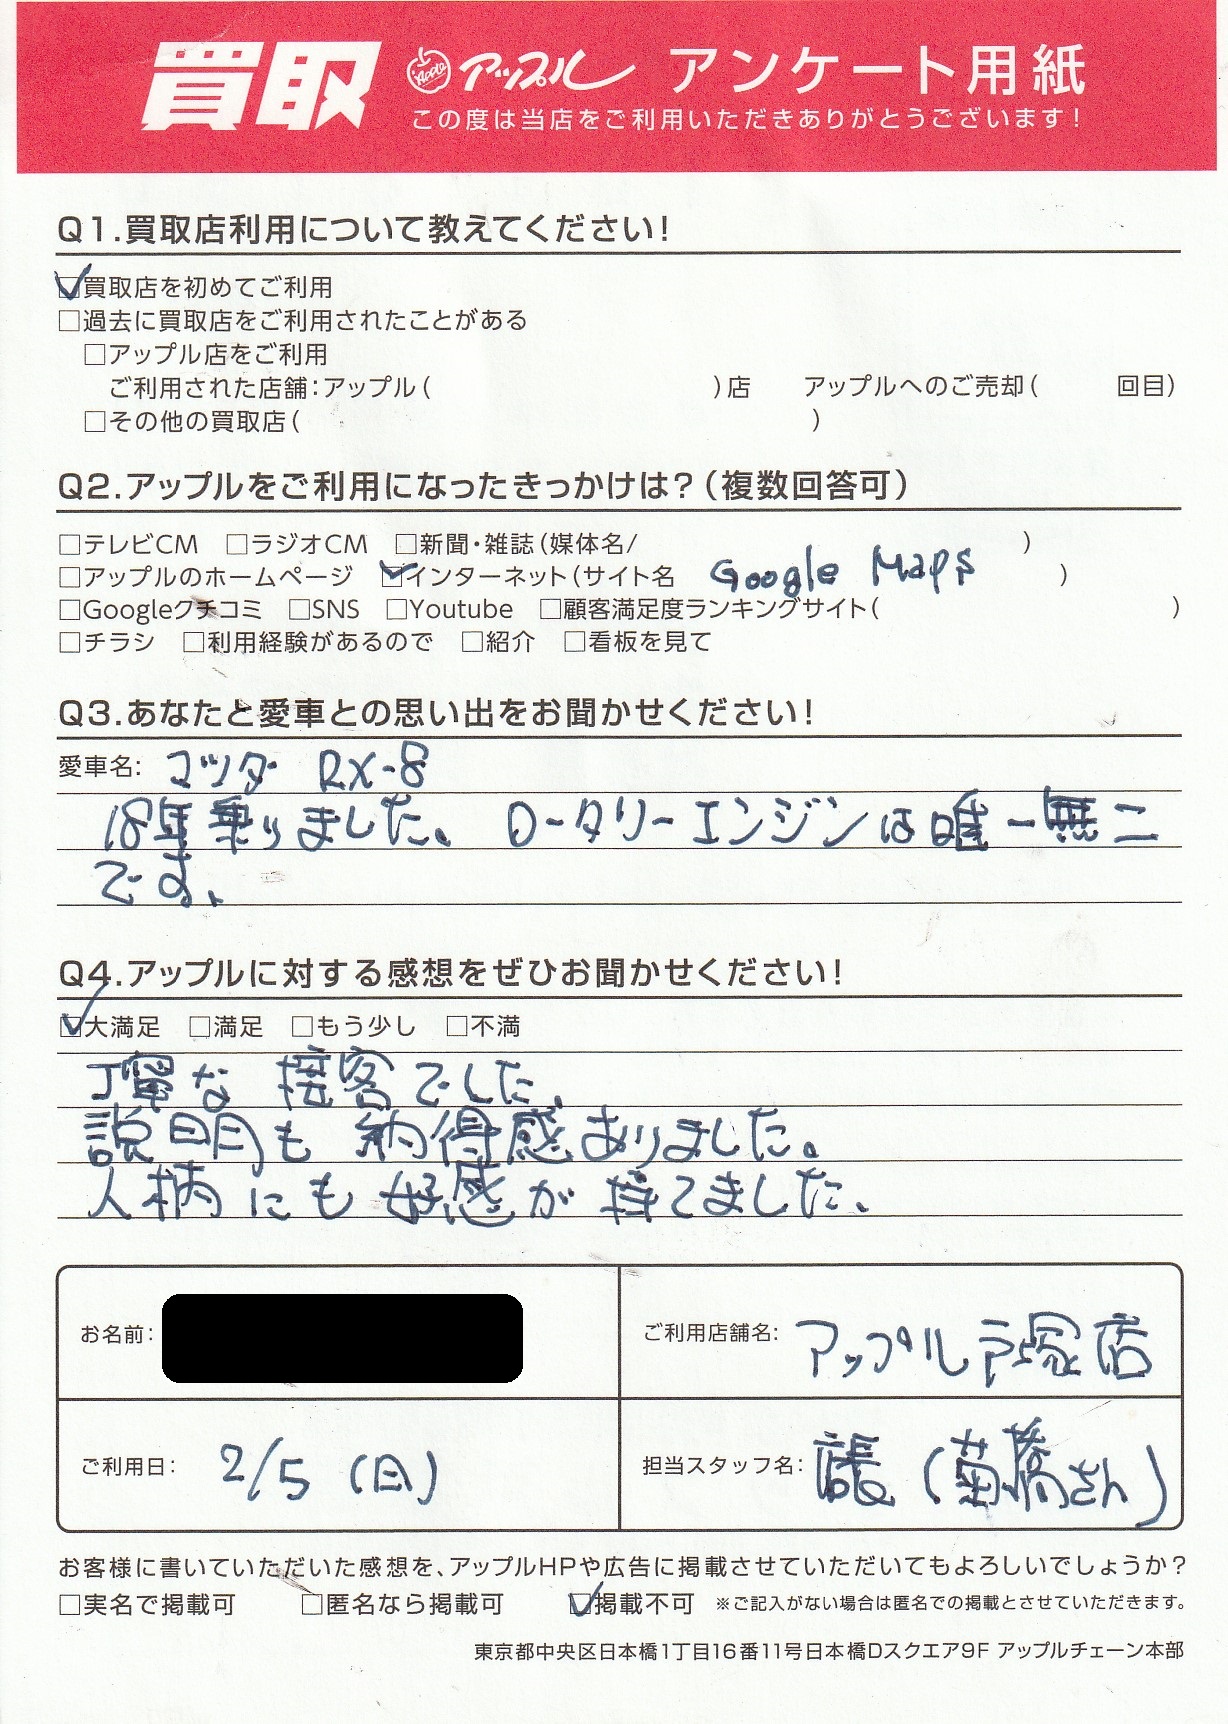 買取 Apple アップル アンケート用紙
この度は当店をご利用いただきありがとうございます!
Q1.買取店利用について教えてください!
☑買取店を初めてご利用
□過去に買取店をご利用されたことがある
□アップル店をご利用
ご利用された店舗:アップル( )店 アップルへのご売却( 回目)
□その他の買取店( )
Q2.アップルをご利用になったきっかけは?(複数回答可)
□テレビCM □ラジオCM □新聞・雑誌(媒体名/ )
□アップルのホームページ ☑インターネット(サイト名 Google Maps )
□Googleクチコミ □SNS □Youtube □顧客満足度ランキングサイト( )
□チラシ □利用経験があるので □紹介 □看板を見て
Q3.あなたと愛車との思い出をお聞かせください!
愛車名: マツダ RX-8
18年乗りました。ロータリーエンジンは唯一無二
です。
Q4.アップルに対する感想をぜひお聞かせください!
☑大満足 □満足 □もう少し □不満
丁寧な接客でした。
説明も納得感ありました。
人柄にも好感が持てました。
お名前: ご利用店舗名: アップル戸塚店
ご利用日: 2/5(日) 担当スタッフ名: 店長(菊橋さん)
お客様に書いていただいた感想を、アップルHPや広告に掲載させていただいてもよろしいでしょうか?
□実名で掲載可 □匿名なら掲載可 ☑掲載不可 ※ご記入がない場合は匿名での掲載とさせていただきます。
東京都中央区日本橋1丁目16番11号日本橋Dスクエア9F アップルチェーン本部